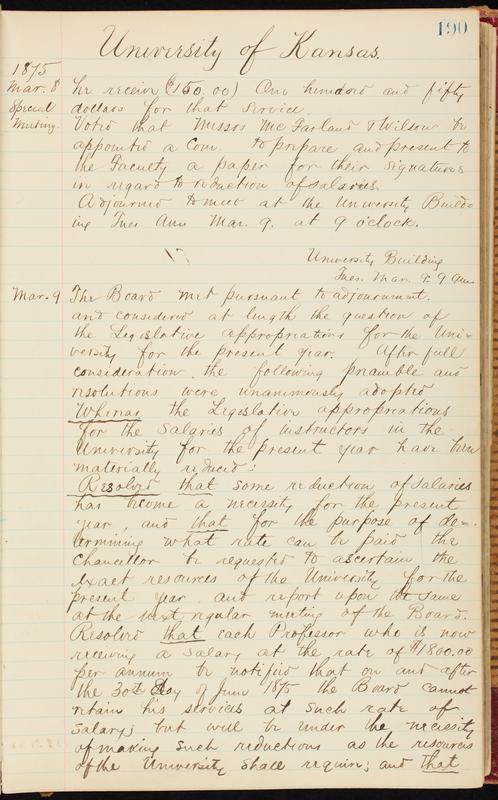 190
University of Kansas.
1875
Mar. 8
Special
Meeting.
he receive ($150.00) One hundred and fifty
dollars for that service.
Voted that Messrs McFarland & Wilson be
appointed a Com. to prepare and present to
the Faculty a paper for their signatures
in regard to reduction of salaries.
Adjourned to meet at the University Build-
ing Tues. Mar. 9. at 9 o'clock.
University Building
Tues. Mar. 9. 9 am
Mar. 9 The Board met pursuant to adjournment.
and considered at length the question of
the Legislative appropriations for the Uni-
versity for the present year. After full
consideration, the following preamble and
resolutions were unanimously adopted
Whereas the Legislative appropriations
for the salaries of instructors in the
University for the present year have been
materially reduced:
Resolved that some reduction of salaries
has become a necessity for the present
year, and that for the purpose of de-
termining what rate can be paid the
Chancellor be requested to ascertain the
exact resources of the University for the
present year and report upon the same
at the next regular meeting of the Board.
Resolved that each Professor who is now
receiving a salary at the rate of $1800.00
per annum be notified that on and after
the 30th day of June 1875 the Board cannot
retain his services at such rate of
salary; but will be under the necessity
of making such reductions as the resources
of the University shall require; and that